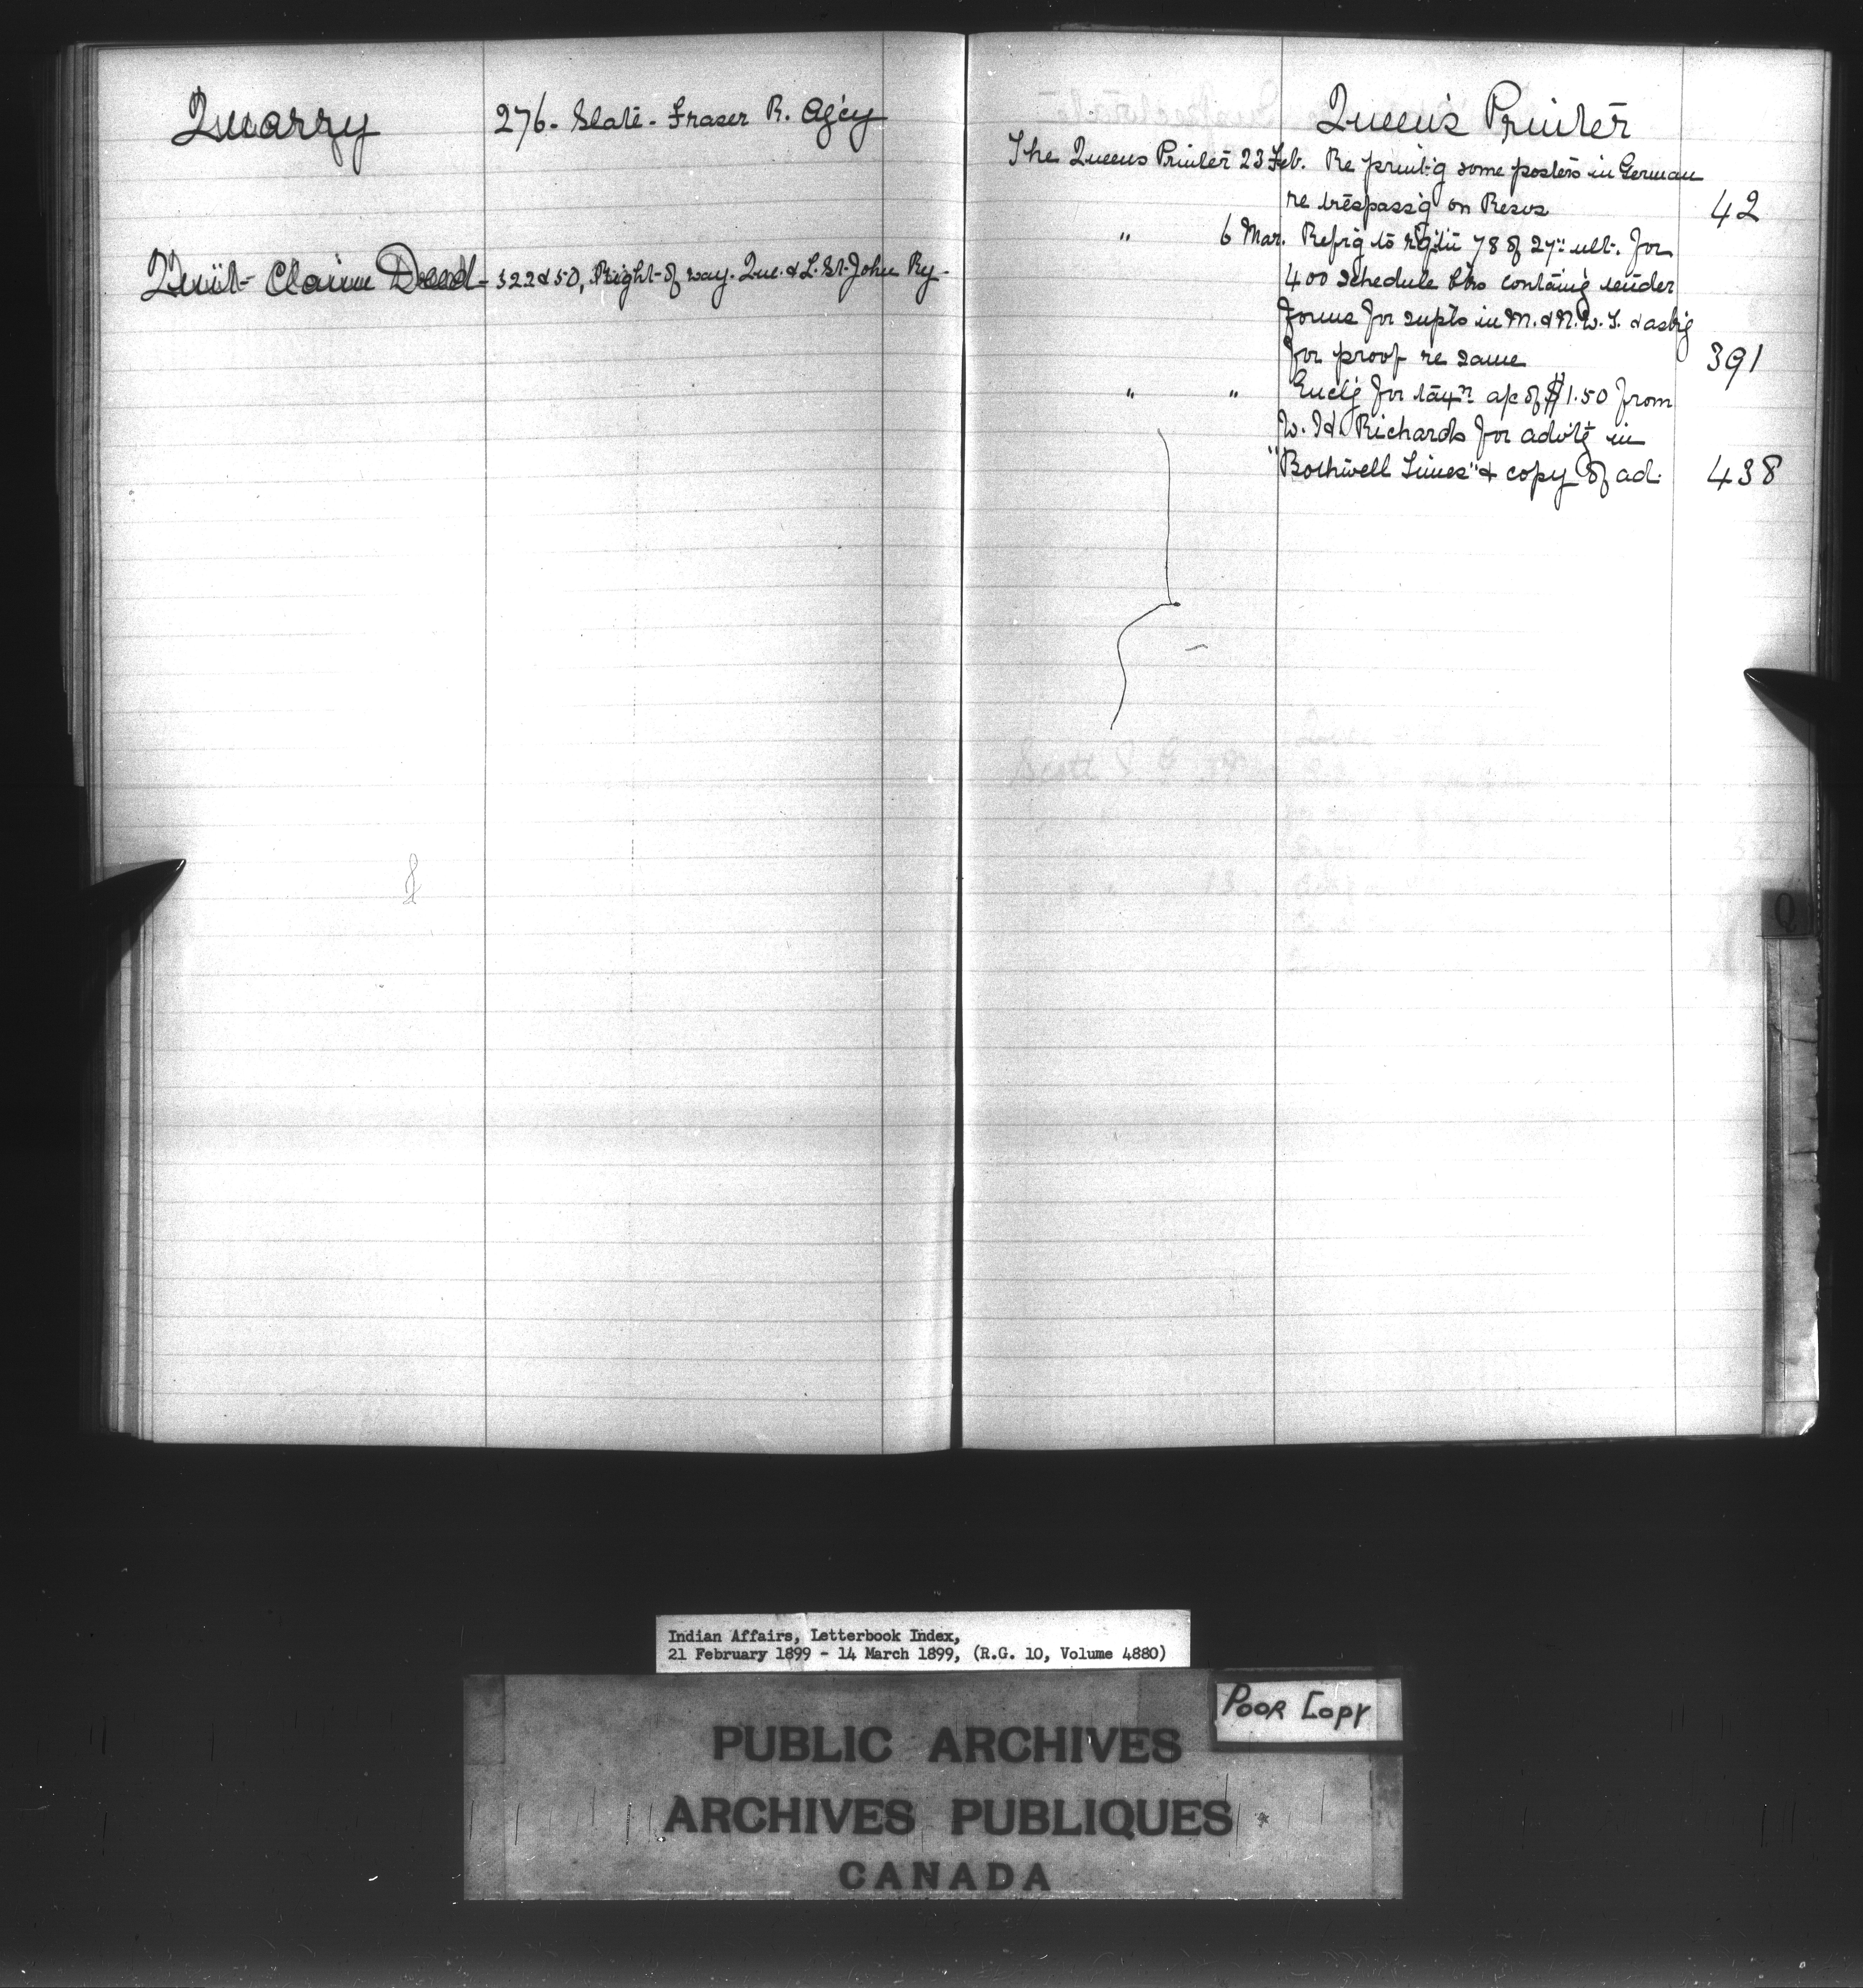 Quarry 276. Slate - Fraser R. Ag'cy
Quit-Claim Deed - 522 & 50, Right-of way. Que. & L. St. John Ry.
Queen's Printer
The Queens Printer 23 Feb. Re print'g some posters in German
re trespass'g on Resvs 42
" 6 Mar. Ref'g to 78 of 27" ult. for
400 schedule containg tender
forms for supts in M. & N.W.T. & ask'g
for proof re same 391
" " Encl'g for a/c of $1.50 from
W. H. Richards for advt'g in
"Bothwell Times" & copy of ad. 438
Q
Indian Affairs, Letterbook Index,
21 February 1899 - 14 March 1899, (R.G. 10, Volume 4880)
POOR COPY
PUBLIC ARCHIVES
ARCHIVES PUBLIQUES
CANADA